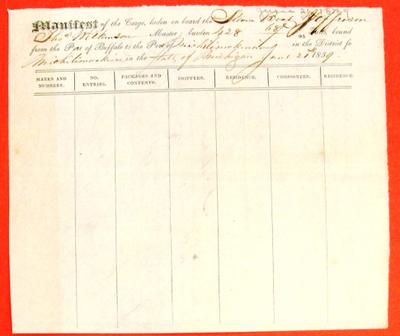 June 21, 1839
Manifest of the Cargo, laden on board the Steam Boat Jefferson
Thos Wilkinson Master, burden 428 68/95 tons, bound
from the Port of Buffalo to the Port of Michilimackinac in the District of
Michilimackinac in the State of Michigan June 21 1839
MARKS AND NUMBERS. NO. ENTRIES. PACKAGES AND CONTENTS. SHIPPERS. RESIDENCE. CONSIGNEES. RESIDENCE.